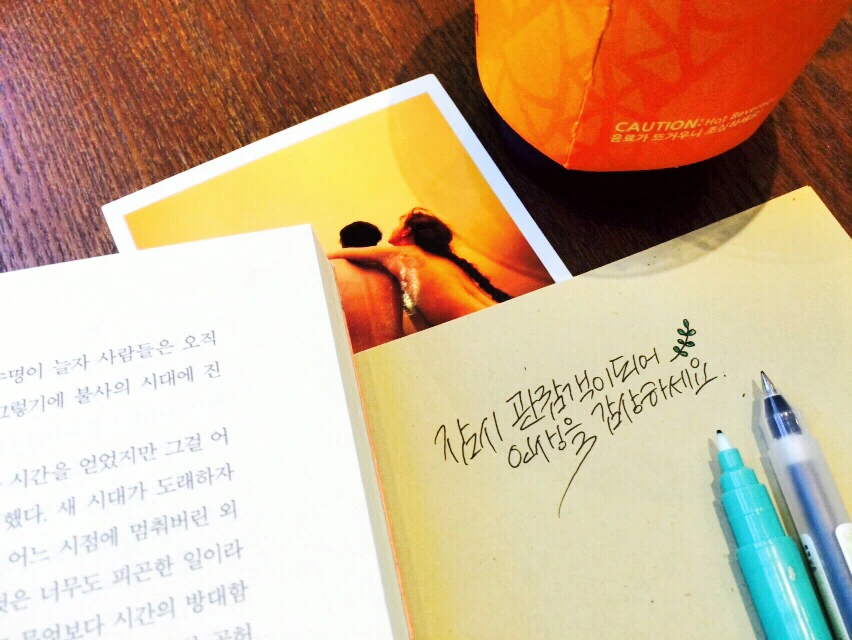 CAUTION: Hot Beverage
음료가 뜨거우니 조심하세요
잠시 관람객이되어
인생을 감상하세요.
수명이 늘자 사람들은 오직
그렇기에 불사의 시대에 진
시간을 얻었지만 그걸 어
했다. 새 시대가 도래하자
어느 시점에 멈춰버린 외
것은 너무도 피곤한 일이라
무엇보다 시간의 방대함